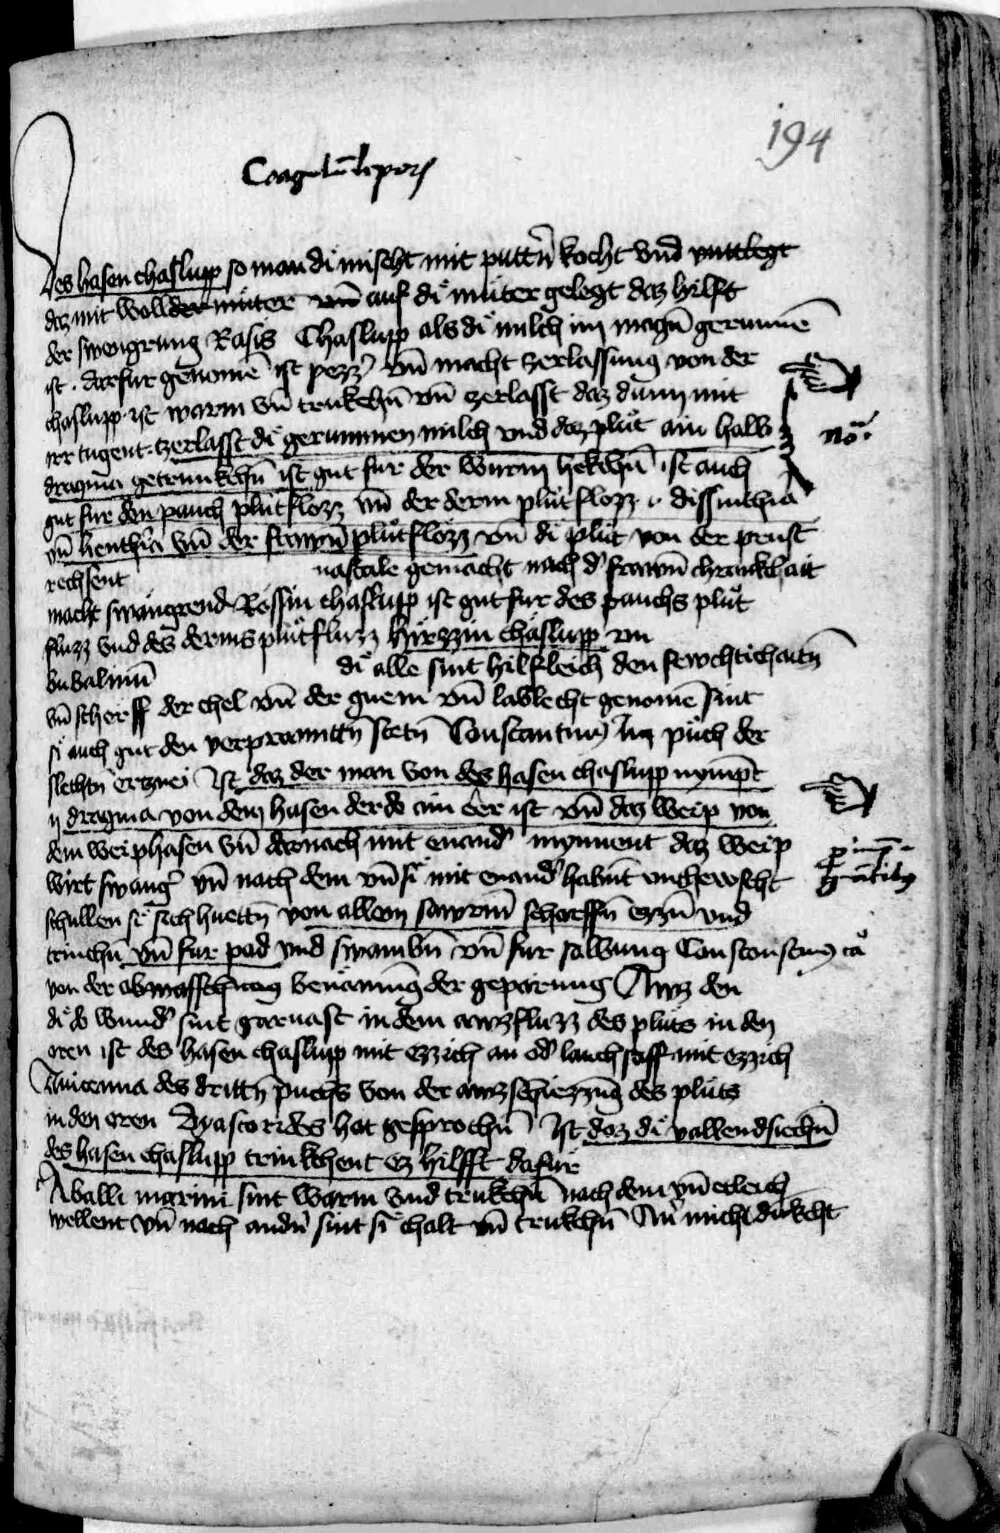 194
Coagulū lepor
Des hasen chaslupp so man di mischt mit puttn̄ kocht vnd
daz mit woll der muter vn̄ auf di muter gelegt daz hilft
der swengrung Rasis Chaslupp als di milch im magn̄ gerunnē
ist . darfur genomē ist pezz vn̄ macht zerlassung von der
chaslupp ist warm vn̄ trukchn̄ vn̄ zerlasst daz dunn mit
irr tugent . zerlasst di gerunnen milch vnd daz plut ain halb
no
dragma getrunkchn̄ ist gut fur der wurm hekchn̄ ist auch
gut fur den pauch plutflozz vn̄ der derm plutflozz dissinthia
vn̄ lienthia vn̄ der frawn̄ plutflozz vn̄ di plut von der prust
rechsent nascale gemacht nach d frawn̄ chrankchait
macht swangrend Rossin chaslupp ist gut fur des pauchs plut
fluzz vnd des derms plutfluzz hirzzin chaslupp vn
bubalinū di alle sint hilfleich den fewchtichaitn̄
vn̄ scherff der chel vn̄ der guem vn̄ lablecht genomē sint
si auch gut den verprantn̄ stetn̄ Constantinus im puch der
slechtn̄ ertznei Ist daz der man von des hasen chaslupp nympt
ij dragma von dem hasen der do ain er ist vn̄ daz weip von
dem weiphasen vn̄ darnach mit enand mynnent daz weip
wirt swang vn̄ nach dem vn̄ si mit enand habnt vnchewscht
schullen si sich huettn̄ von allem sawrm scherffn̄ ezzn̄ vnd
trinchn̄ vn̄ fur pad vnd swambn̄ vn̄ fur salbung Constantinus ca
von der abwasschung benamūg der geparung Awz den
di do wund sint garnast in dem awzfluzz des pluts in den
oren ist des hasen chaslupp mit ezzich an od lauchsaff mit ezzich
Auicenna des drittn̄ puchs von der awzschiezzūg des pluts
in den oren Dyascorides hat gesprochn̄ Ist daz di vallendsiechn̄
des hasen chaslupp trinkchent ez hilfft dafur
Aballi marini sint warm vnd trukchn̄ nach dem vn̄ etleich
wellent vn̄ nach andn̄ sint si chalt vn̄ trukchn̄ An mich dukcht